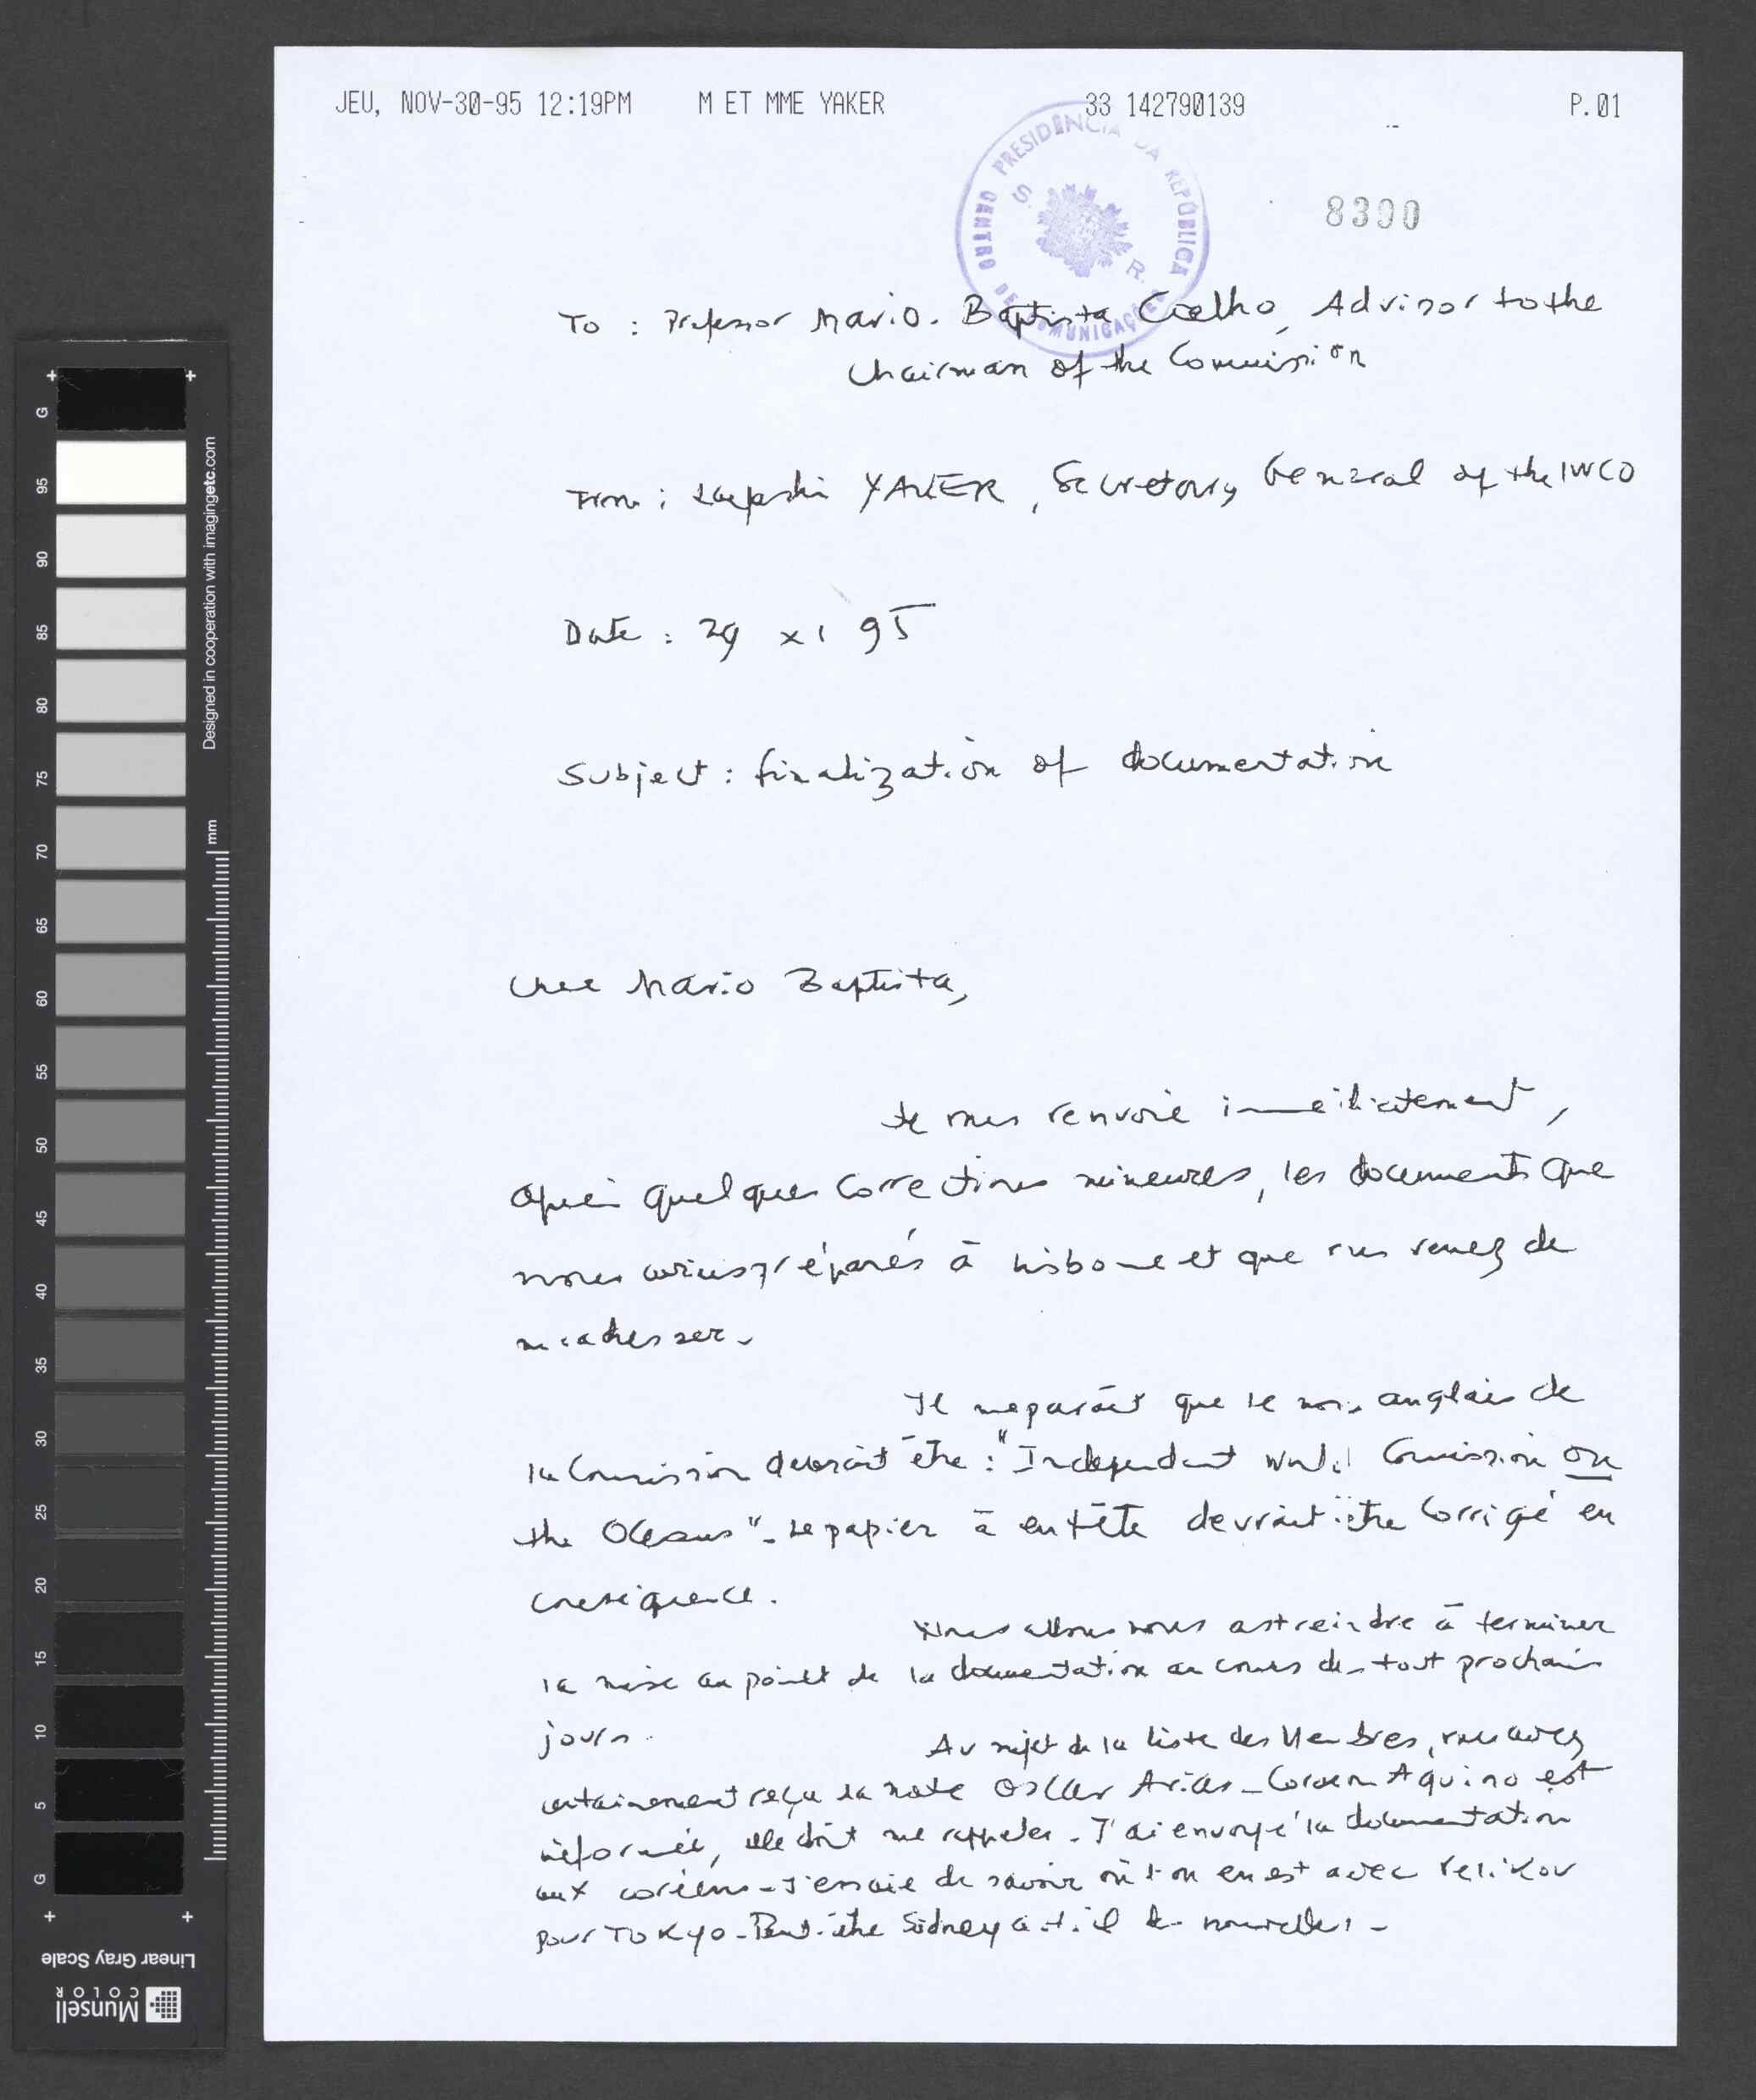 JEU, NOV-30-95 12:19PM M ET MME YAKER 33 142790139 P.01
PRESIDÊNCIA DA REPÚBLICA
CENTRO DE COMUNICAÇÕES
S. R.
8300
To : Professor Mario. Baptista Coelho, Advisor to the
Chairman of the Commission
From : YAKER, Secretary General of the IWCO
Date : 29 XI 95
Subject : finalization of documentation
Cher Mario Baptista,
Je vous renvoie immédiatement,
après quelques corrections mineures, les documents que
nous avions préparés à Lisbonne et que vous venez de
m'adresser.
Il me paraît que le nom anglais de
la Commission devrait être : "Independent World Commission on
the Oceans". Le papier à en tête devrait être corrigé en
conséquence.
Nous allons nous astreindre à terminer
la mise au point de la documentation au cours des tout prochains
jours.
Au sujet de la liste des Membres, vous avez
certainement reçu la note Oscar Arias - Corazon Aquino est
informée, elle doit me rappeler - J'ai envoyé la documentation
aux coréens - J'essaie de savoir où l'on en est avec Velikov
pour TOKyo - Peut-être Sidney a-t-il des nouvelles -
Designed in cooperation with imagingetc.com
mm
G
95
90
85
80
75
70
65
60
55
50
45
40
35
30
25
20
15
10
5
G
Linear Gray Scale
Munsell
COLOR